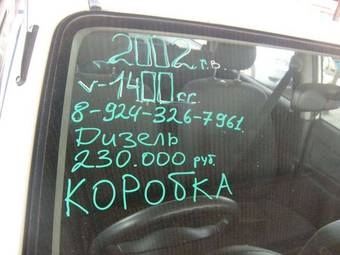 2002 г.в.
V-1400 сс.
8-924-326-7961.
Дизель
230.000 руб.
КОРОБКА